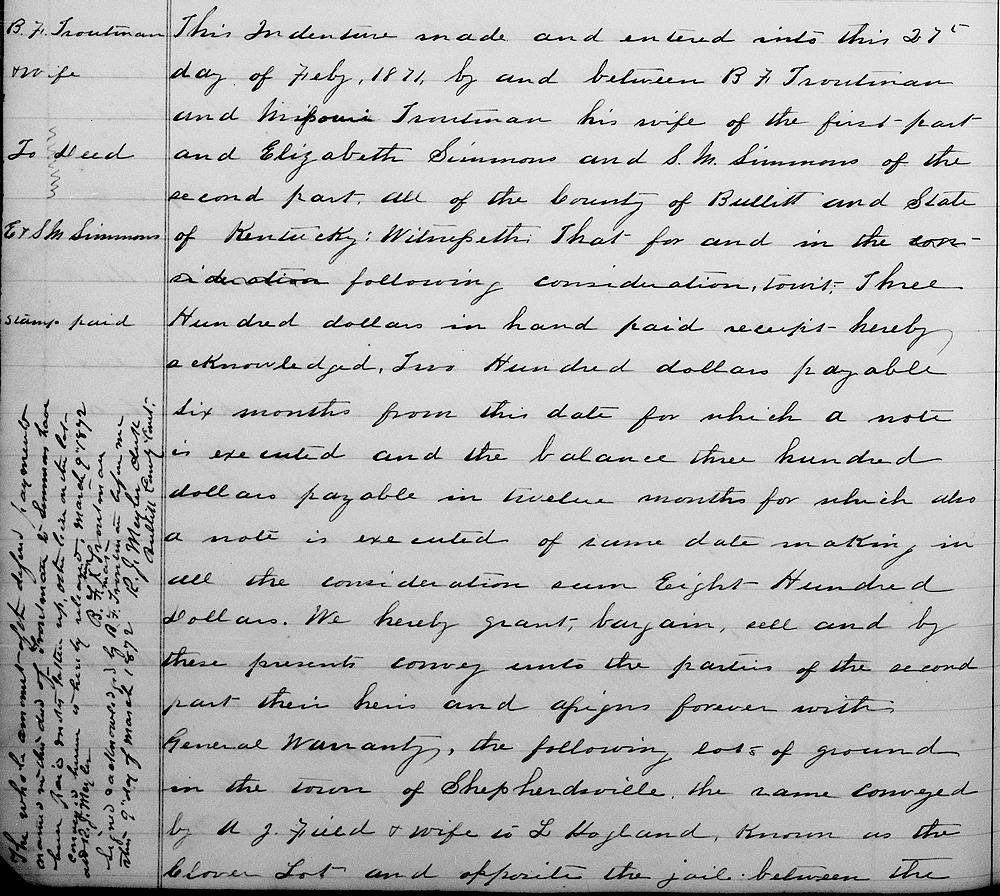 B. F. Troutman
& Wife
To Deed
E & S M Simmons
stamp paid
This Indenture made and entered into this 27th
day of Feby, 1871, by and between B F Troutman
and Missouri Troutman his wife of the first part
and Elizabeth Simmons and S. M. Simmons of the
second part, all of the County of Bullitt and State
of Kentucky: Witnesseth: That for and in the con-
sideration following consideration, towit; Three
Hundred dollars in hand paid receipt hereby
acknowledged, Two Hundred dollars payable
six months from this date for which a note
is executed and the balance three hundred
dollars payable in twelve months for which also
a note is executed of same date making in
all the consideration sum Eight Hundred
Dollars. We hereby grant, bargain, sell and by
these presents convey unto the parties of the second
part their heirs and assigns forever with
General Warranty, the following lots of ground
in the town of Shepherdsville, the same conveyed
by A J. Field & Wife to L Hogland, Known as the
Clover Lot and opposite the jail between the
The whole amount of the deferd payments
named in this deed of Troutman to Simmons have
been paid notes taken up, note lien on the lot
conveyed herein is hereby released, March 9" 1872
R. J. Meyler B. F. Troutman
Signed & acknowledged by B. F. Troutman before me
this 9" day of March 1872 R. J. Meyler Clerk
Bullitt County Court.